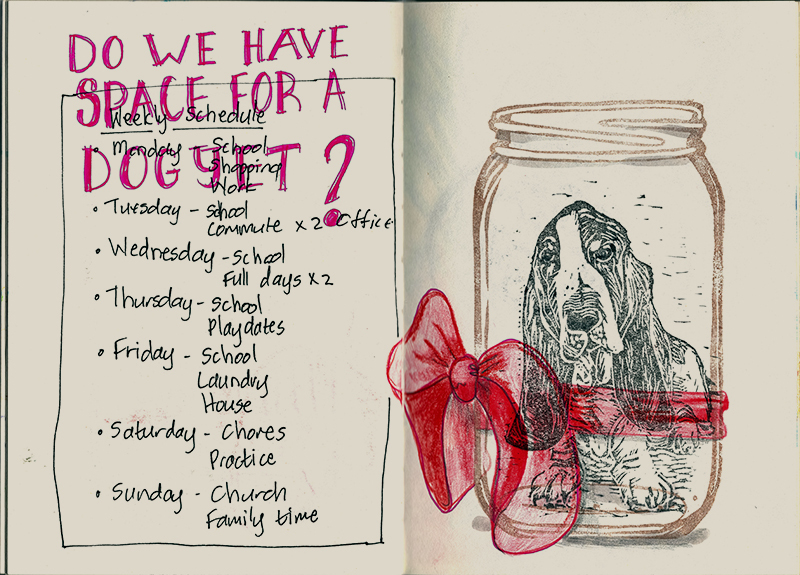 DO WE HAVE
SPACE FOR A
DOG YET?
Weekly Schedule
• Monday - School
Shopping
Work
• Tuesday - School
Commute x2 Office
• Wednesday - School
Full days x2
• Thursday - School
Playdates
• Friday - School
Laundry
House
• Saturday - Chores
Practice
• Sunday - Church
Family time